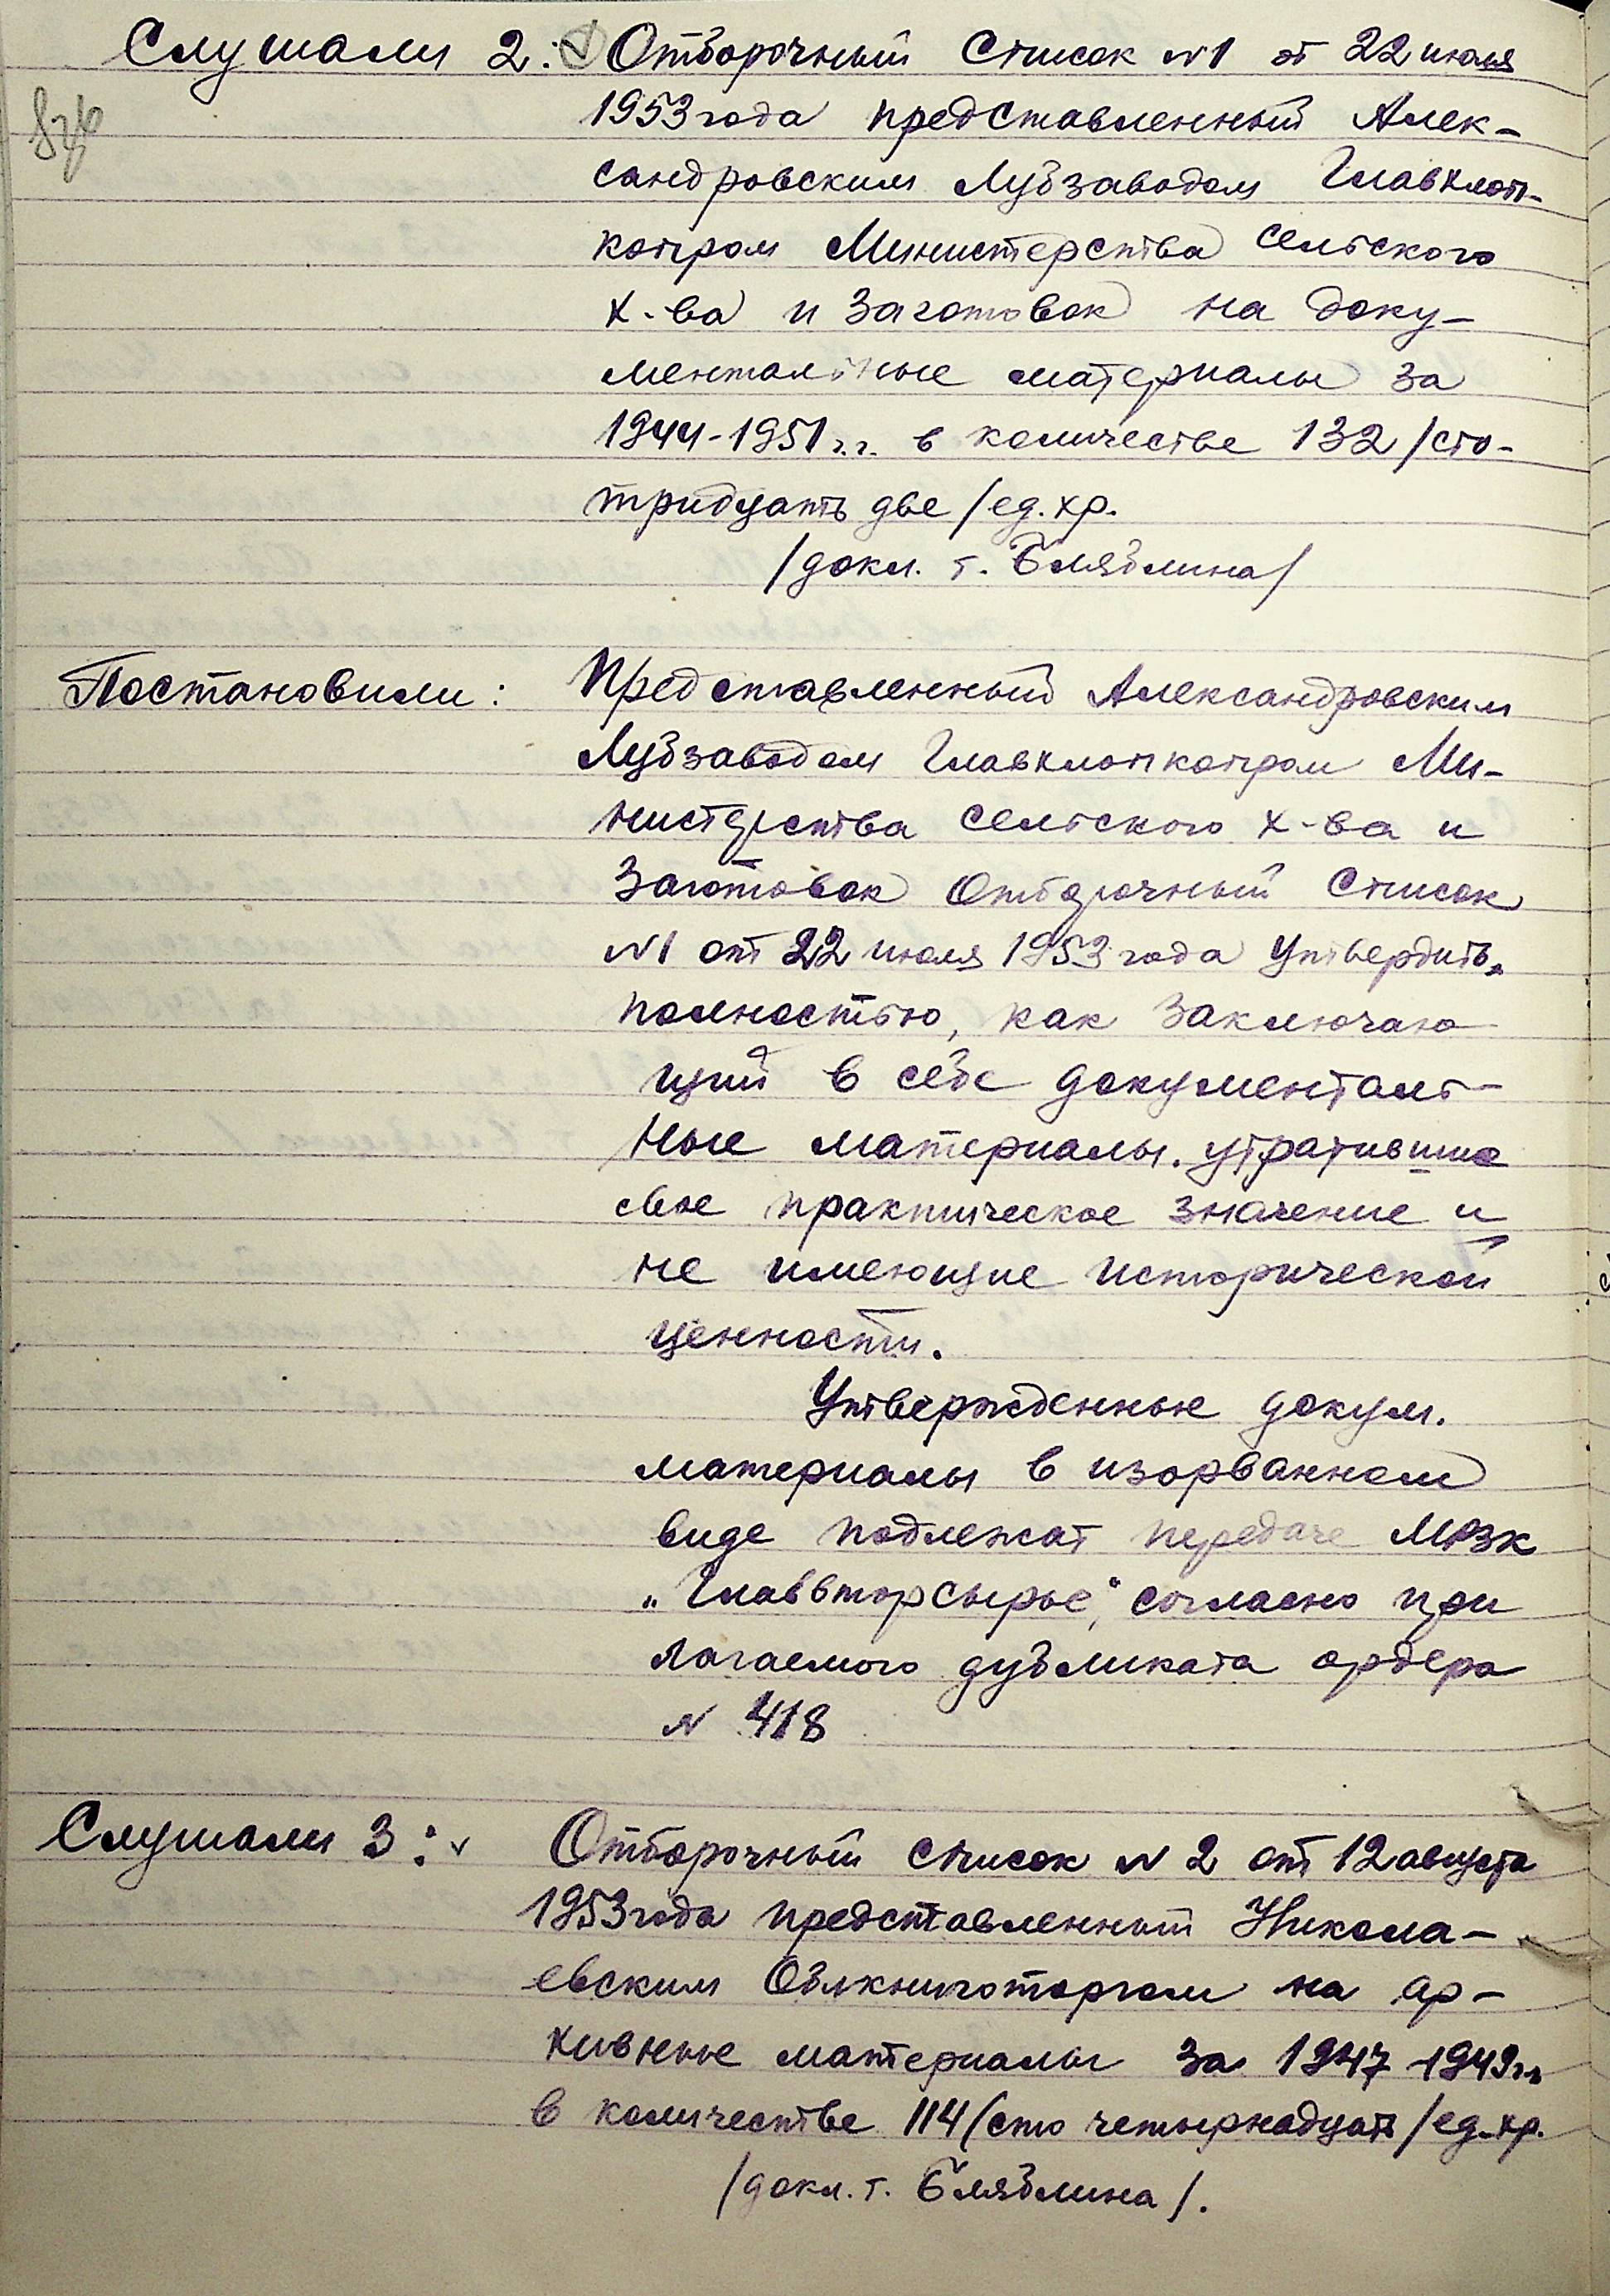 Слушали 2: Отборочный Список №1 от 22 июля
1953 года представленный Алек-
сандровским Лубзаводом Главхлоп-
копром Министерства сельского
х-ва и Заготовок на доку-
ментальные материалы за
1944-1951 г.г. в количестве 132 /сто-
тридцать две/ ед. хр.
/докл. т. Бляблина/
Постановили: Представленный Александровским
Лубзаводом Главхлопкопром Ми-
нистерства сельского х-ва и
Заготовок Отборочный Список
№1 от 22 июля 1953 года Утвердить,
полностью, как заключаю
щий в себе документаль-
ные материалы. утратившие
свое практическое значение и
не имеющие исторической
ценности.
Утвержденные докум.
материалы в изорванном
виде подлежат передаче МРЗК
„Главвторсырье", согласно при
лагаемого дубликата ордера
№ 418
Слушали 3: Отборочный список № 2 от 12 августа
1953 года представленный Никола-
евским Облкниготоргом на ар-
хивные материалы за 1947-1949 гг.
в количестве 114 (сто четырнадцать/ ед. хр.
/докл. т. Бляблина/.